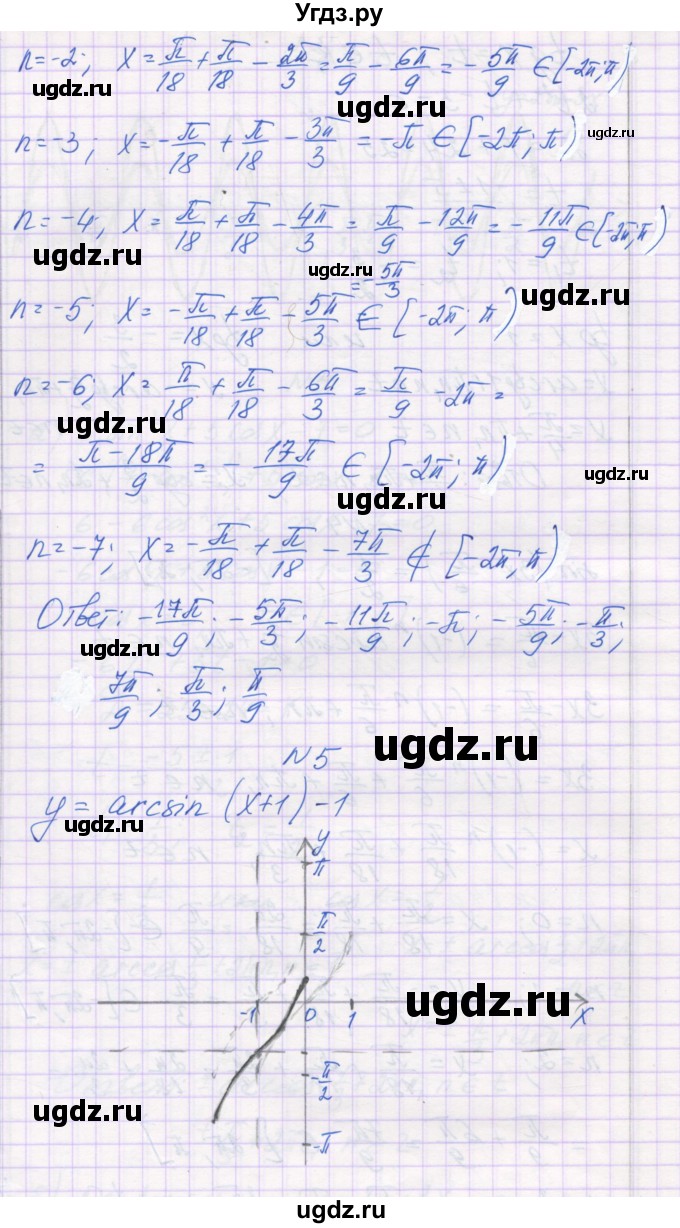 Угдз.ру
n=-2; x = π/18 + π/18 - 2π/3 = π/9 - 6π/9 = -5π/9 ∈ [-2π; π)
ugdz.ru ugdz.ru ugdz.ru
n=-3; x = -π/18 + π/18 - 3π/3 = -π ∈ [-2π; π)
n=-4, x = π/18 + π/18 - 4π/3 = π/9 - 12π/9 = -11π/9 ∈ [-2π; π)
ugdz.ru ugdz.ru ugdz.ru
n=-5; x = -π/18 + π/18 - 5π/3 = -5π/3 ∈ [-2π; π)
n=-6; x = π/18 + π/18 - 6π/3 = π/9 - 2π =
ugdz.ru ugdz.ru
= (π-18π)/9 = -17π/9 ∈ [-2π; π)
ugdz.ru ugdz.ru
n=-7; x = -π/18 + π/18 - 7π/3 ∉ [-2π; π)
Ответ: -17π/9; -5π/3; -11π/9; -π; -5π/9; -π/3;
ugdz.ru ugdz.ru
7π/9; π/3; π/9
ugdz.ru
N5
y = arcsin (x+1) - 1
ugdz.ru
y
π
π/2
-1 0 1 x
ugdz.ru ugdz.ru
-π/2
ugdz.ru ugdz.ru
-π
ugdz.ru ugdz.ru